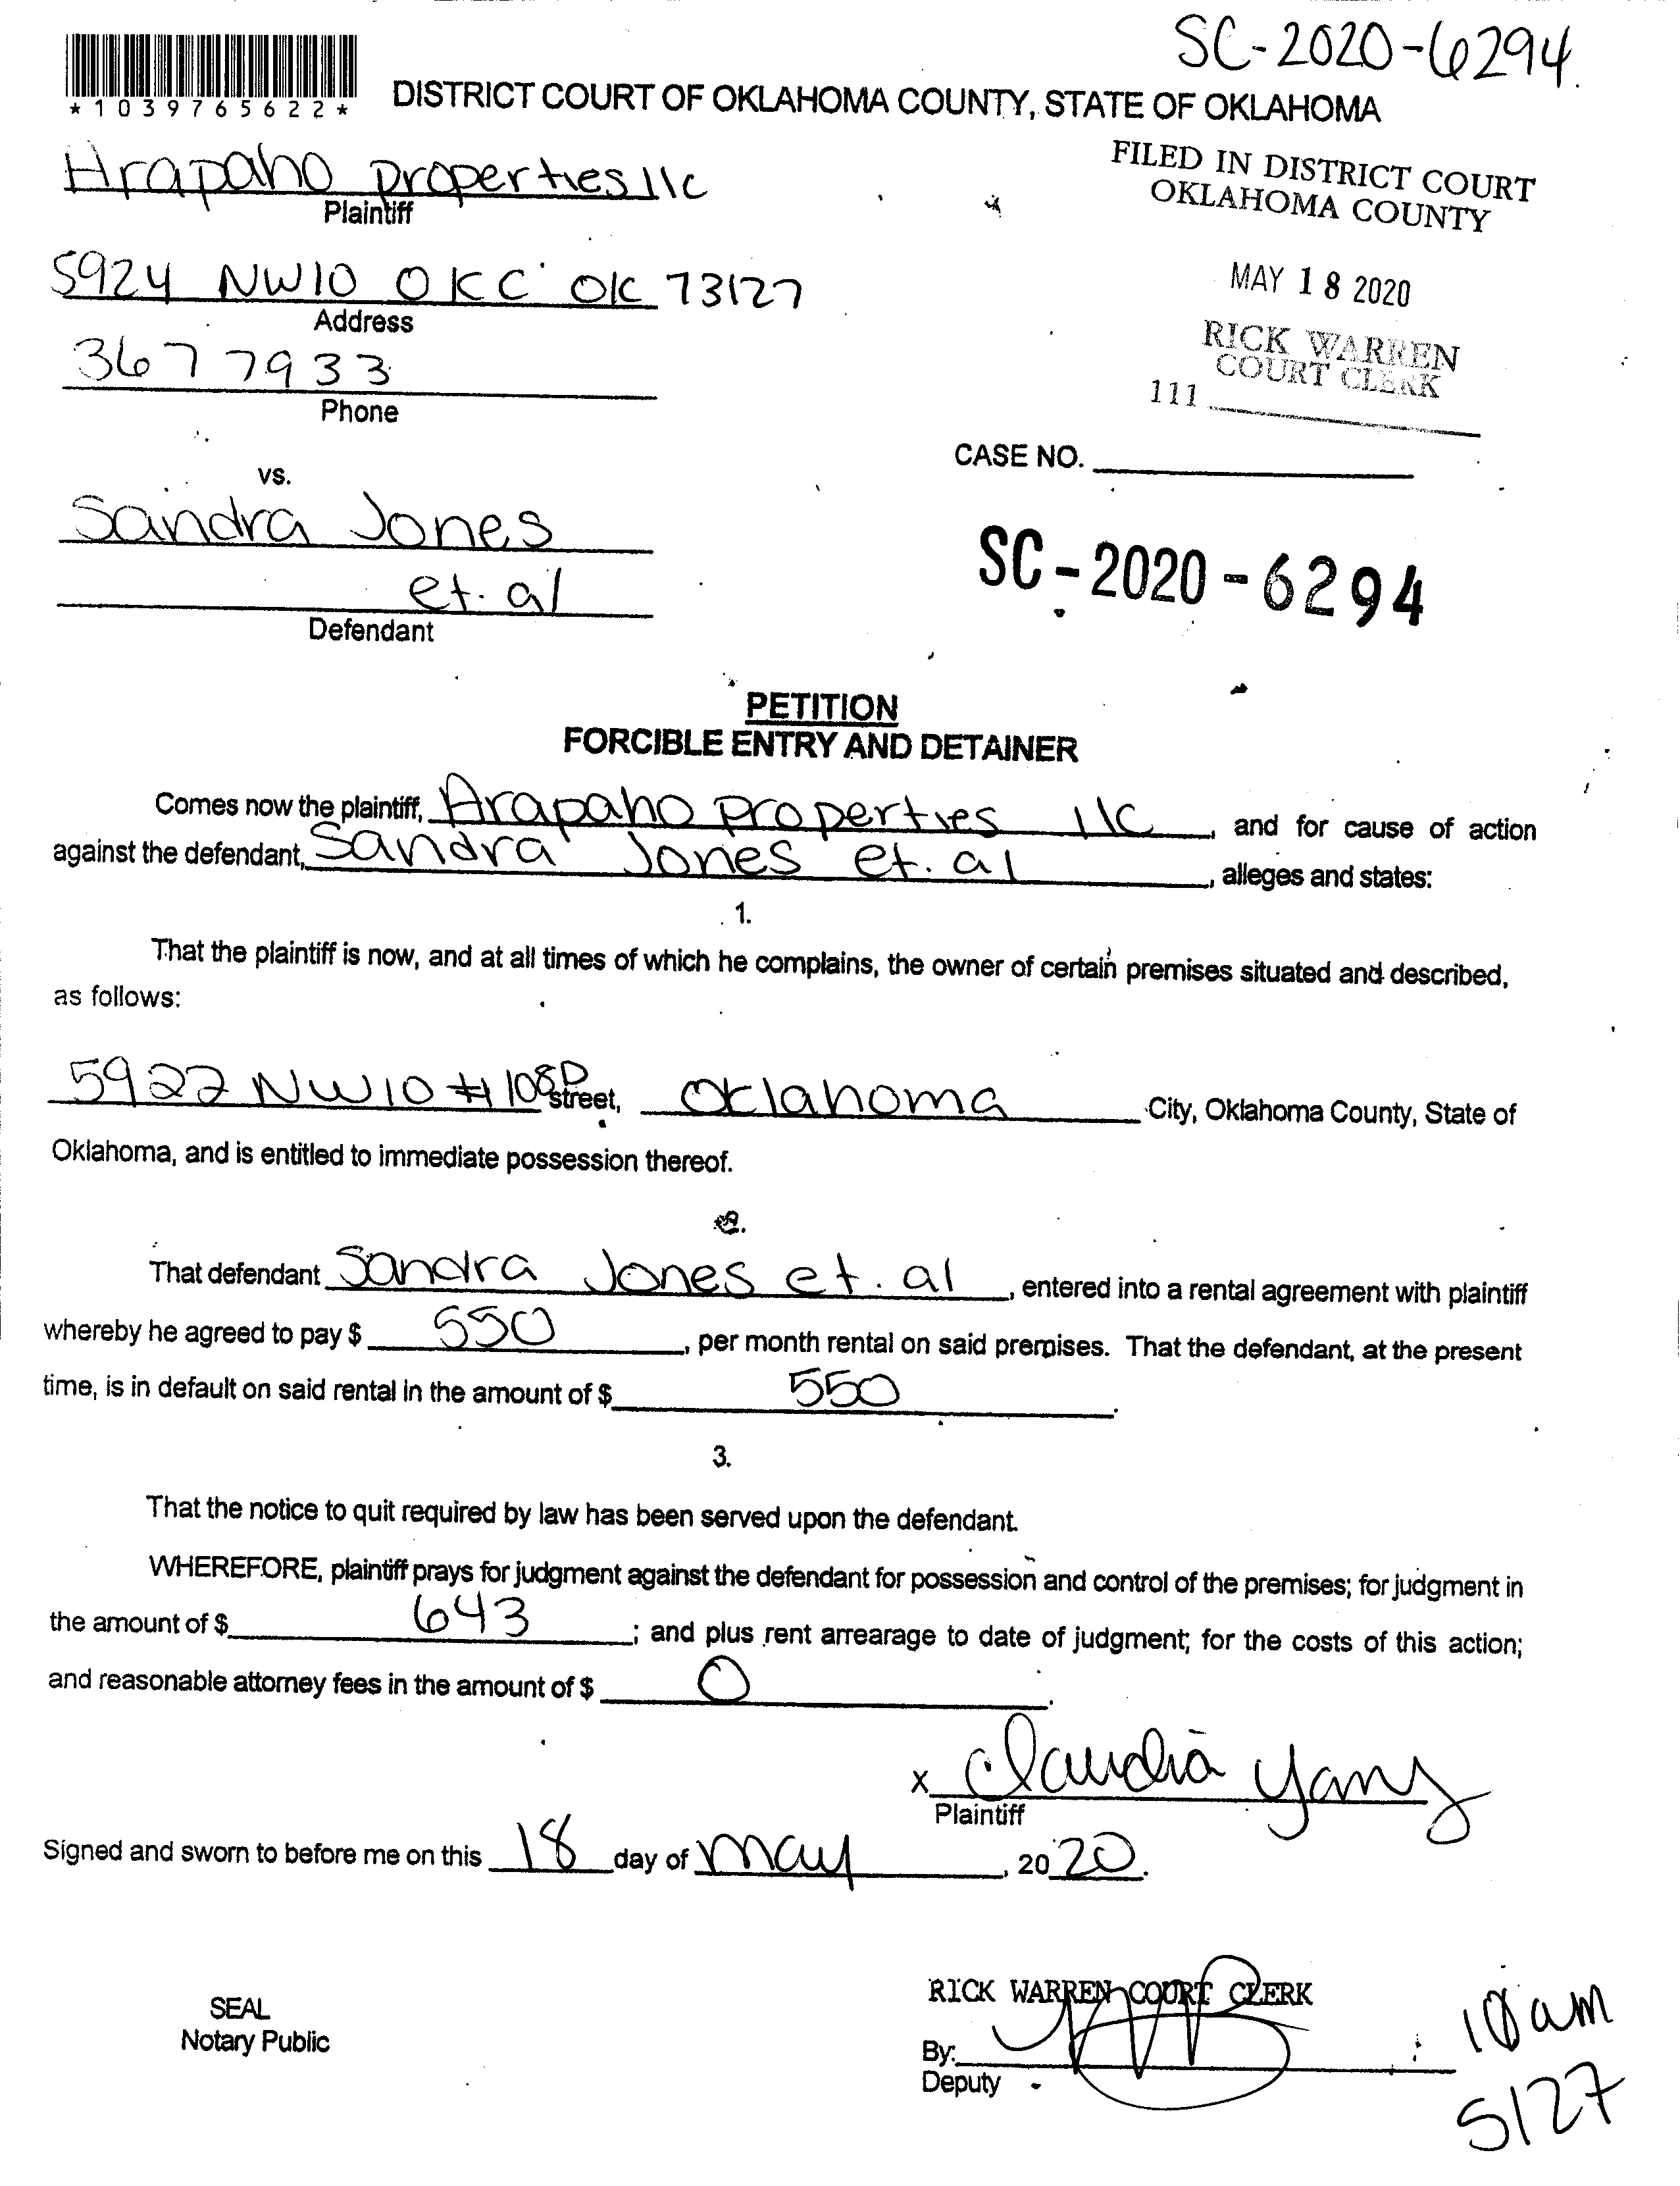 SC-2020-6294
*1039765622*
DISTRICT COURT OF OKLAHOMA COUNTY, STATE OF OKLAHOMA
Arapaho properties llc
Plaintiff
FILED IN DISTRICT COURT
OKLAHOMA COUNTY
5924 NW10 OKC OK 73127
Address
MAY 18 2020
367 7933
Phone
RICK WARREN
COURT CLERK
111
CASE NO.
vs.
Sandra Jones
et. al
Defendant
SC-2020-6294
PETITION
FORCIBLE ENTRY AND DETAINER
Comes now the plaintiff, Arapaho properties llc, and for cause of action
against the defendant, Sandra Jones et. al, alleges and states:
1.
That the plaintiff is now, and at all times of which he complains, the owner of certain premises situated and described,
as follows:
5922 NW10 #108D street, Oklahoma City, Oklahoma County, State of
Oklahoma, and is entitled to immediate possession thereof.
2.
That defendant Sandra Jones et. al, entered into a rental agreement with plaintiff
whereby he agreed to pay $ 550, per month rental on said premises. That the defendant, at the present
time, is in default on said rental in the amount of $ 550.
3.
That the notice to quit required by law has been served upon the defendant.
WHEREFORE, plaintiff prays for judgment against the defendant for possession and control of the premises; for judgment in
the amount of $ 643; and plus rent arrearage to date of judgment; for the costs of this action;
and reasonable attorney fees in the amount of $ 0.
x Claudia Yany
Plaintiff
Signed and sworn to before me on this 18 day of May, 2020.
SEAL
Notary Public
RICK WARREN COURT CLERK
By:
Deputy
10am
5/27